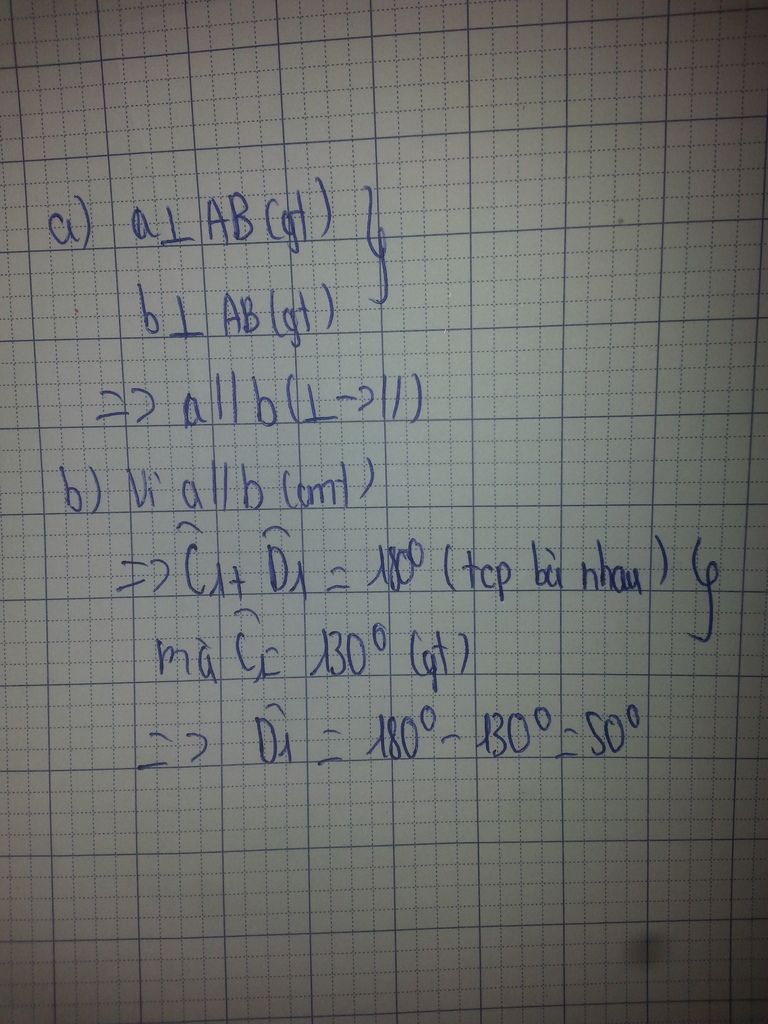 a) a ⊥ AB (gt) }
b ⊥ AB (gt)
=> a // b (⊥ -> //)
b) Vì a // b (cmt)
=> Ĉ1 + D̂1 = 180° (tcp bù nhau) }
mà Ĉ1 = 130° (gt)
=> D̂1 = 180° - 130° = 50°